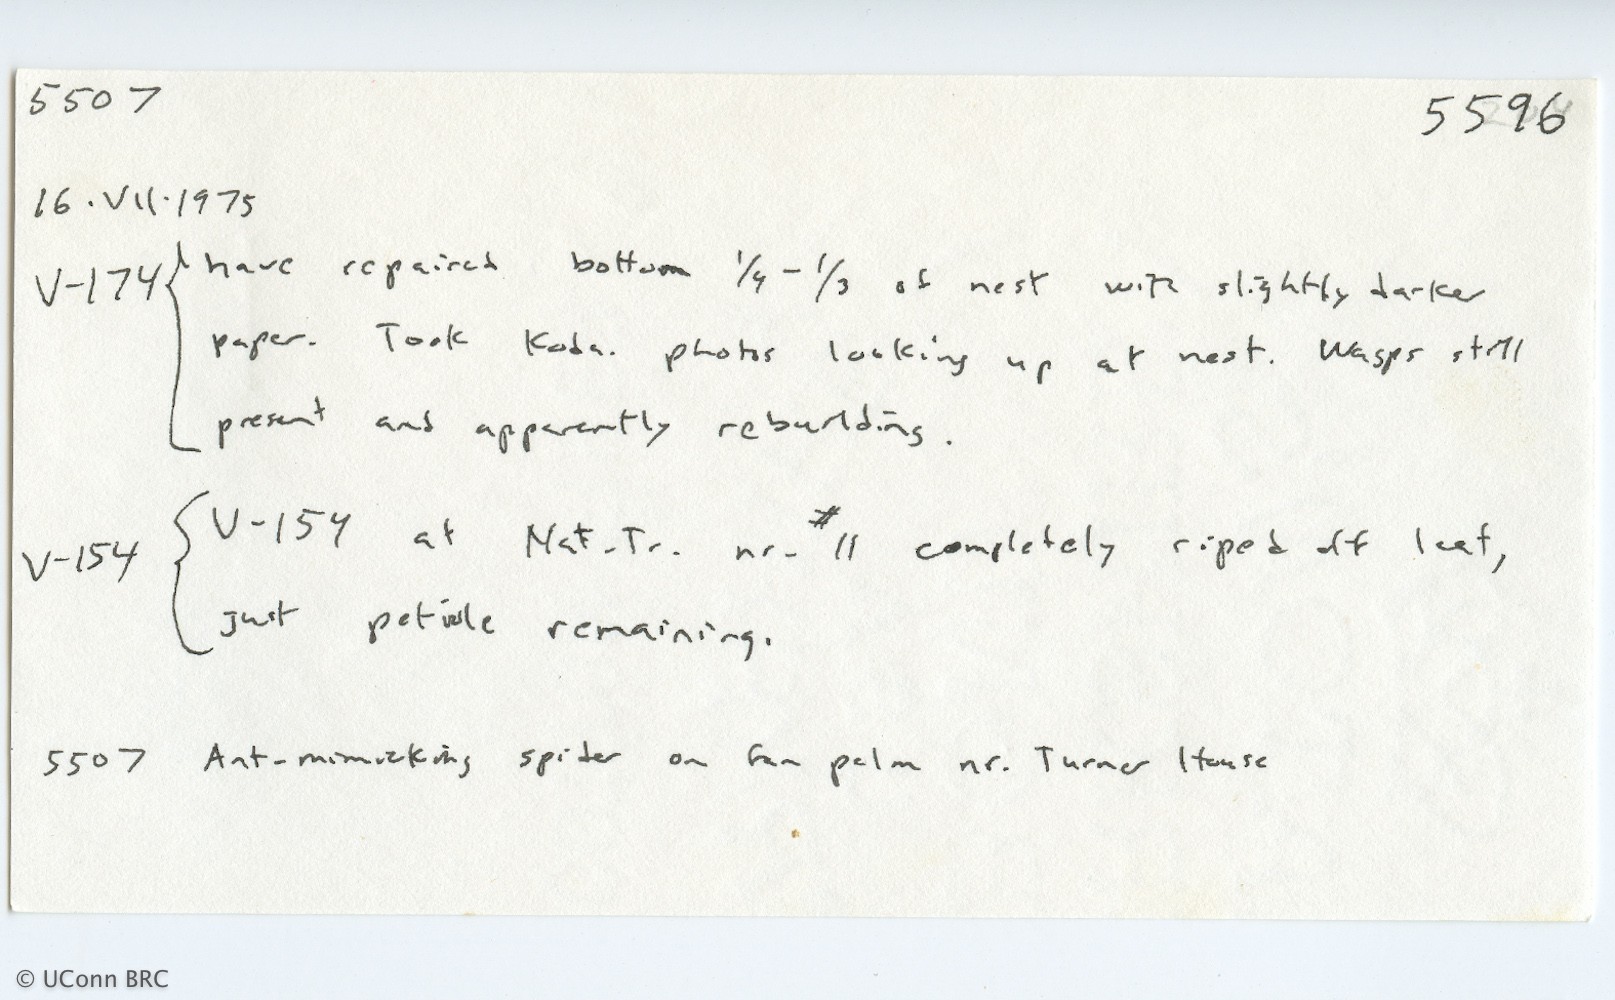 5507 5596
16.VII.1975
V-174 { have repaired bottom 1/4 - 1/3 of nest with slightly darker
paper. Took Koda. photos looking up at nest. Wasps still
present and apparently rebuilding.
V-154 { V-154 at Nat. Tr. nr. #11 completely riped off leaf,
just petiole remaining.
5507 Ant-mimicking spider on fan palm nr. Turner House
© UConn BRC